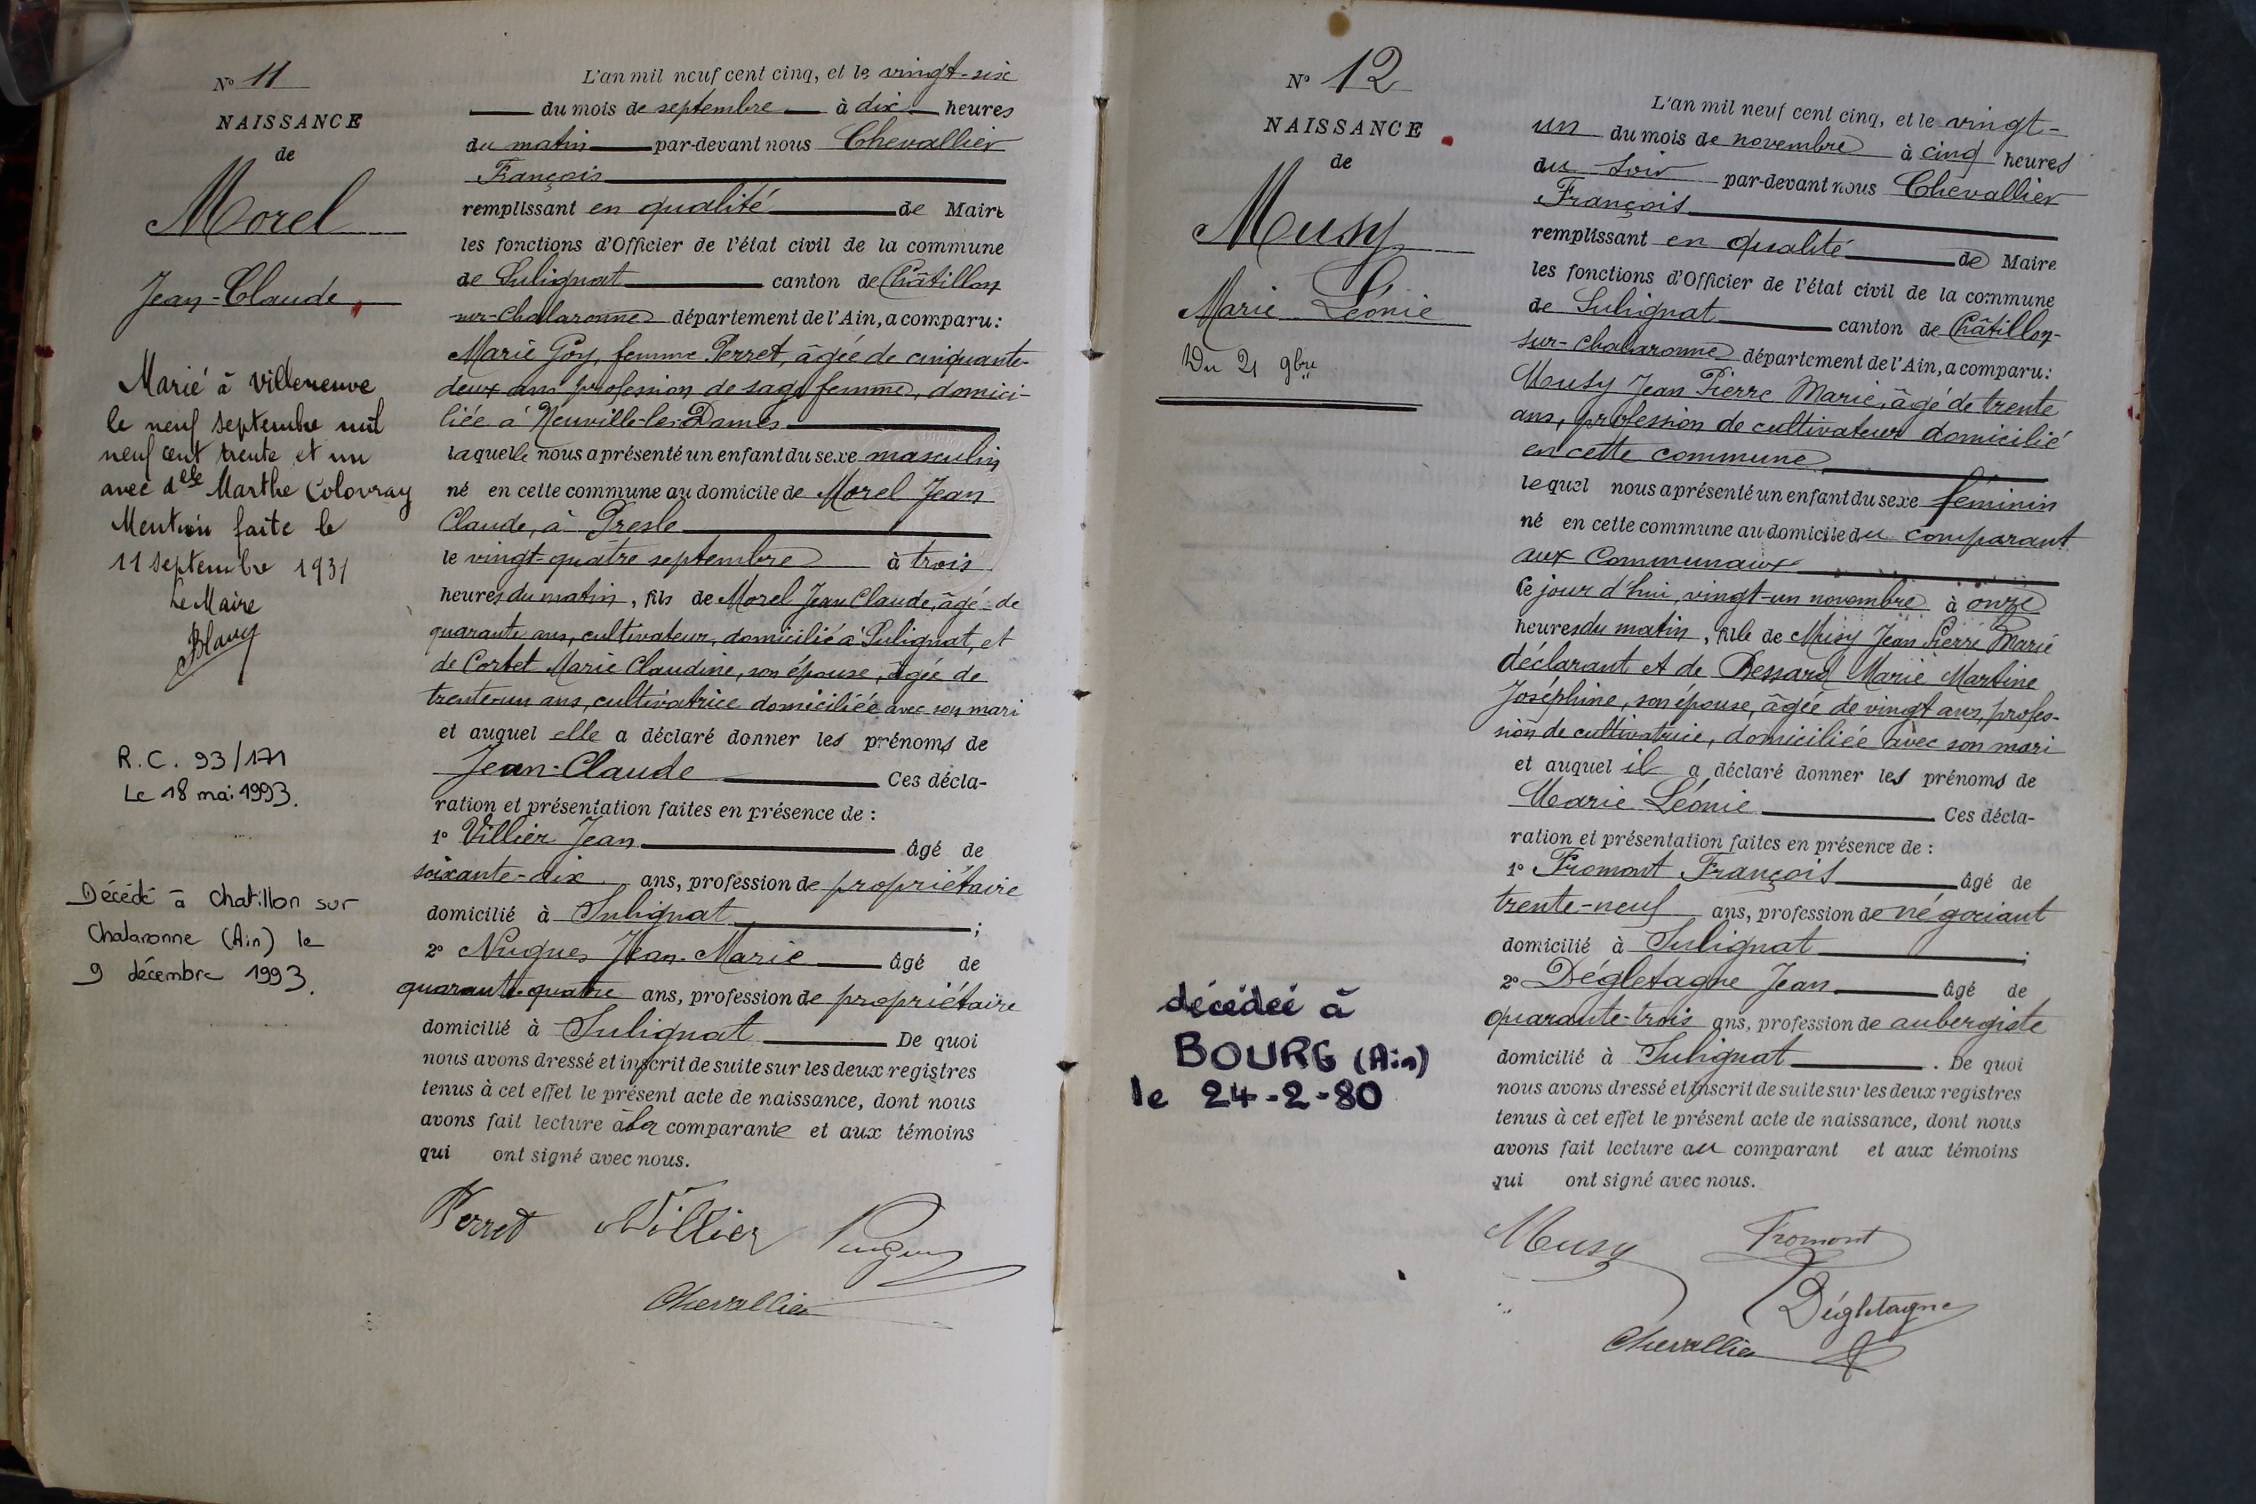 N° 11
NAISSANCE
de
Morel
Jean-Claude
Marié à Villeneuve
le neuf septembre mil
neuf cent trente et un
avec delle Marthe Colovray
Mention faite le
11 septembre 1931
Le Maire
Blanc
R.C. 93/171
Le 18 mai 1993.
Décédé à Chatillon sur
Chalaronne (Ain) le
9 décembre 1993.
L'an mil neuf cent cinq, et le vingt-six
du mois de septembre à dix heures
du matin par-devant nous Chevallier
François
remplissant en qualité de Maire
les fonctions d'Officier de l'état civil de la commune
de Sulignat canton de Châtillon
sur-Chalaronne département de l'Ain, a comparu:
Marie Goy, femme Perret, âgée de cinquante-
deux ans profession de sage femme, domici-
liée à Neuville-les-Dames
laquelle nous a présenté un enfant du sexe masculin
né en cette commune au domicile de Morel Jean
Claude, à Presle
le vingt-quatre septembre à trois
heures du matin, fils de Morel Jean Claude, âgé de
quarante ans, cultivateur, domicilié à Sulignat, et
de Cortet Marie Claudine, son épouse, âgée de
trente-un ans, cultivatrice domiciliée avec son mari
et auquel elle a déclaré donner les prénoms de
Jean-Claude Ces décla-
ration et présentation faites en présence de :
1° Villier Jean âgé de
soixante-dix ans, profession de propriétaire
domicilié à Sulignat ;
2° Nugues Jean-Marie âgé de
quarante-quatre ans, profession de propriétaire
domicilié à Sulignat De quoi
nous avons dressé et inscrit de suite sur les deux registres
tenus à cet effet le présent acte de naissance, dont nous
avons fait lecture à la comparante et aux témoins
qui ont signé avec nous.
Perret Villier Nugues
Chevallier
N° 12
NAISSANCE
de
Musy
Marie Léonie
Du 21 9bre
décédée à
BOURG (Ain)
le 24-2-80
L'an mil neuf cent cinq, et le vingt-
un du mois de novembre à cinq heures
du soir par-devant nous Chevallier
François
remplissant en qualité de Maire
les fonctions d'Officier de l'état civil de la commune
de Sulignat canton de Châtillon-
sur-Chalaronne département de l'Ain, a comparu:
Musy Jean Pierre Marie, âgé de trente
ans, profession de cultivateur domicilié
en cette commune
lequel nous a présenté un enfant du sexe féminin
né en cette commune au domicile du comparant
aux Communaux
Ce jour d'hui, vingt-un novembre à onze
heures du matin, fille de Musy Jean Pierre Marie
déclarant et de Bessard Marie Martine
Joséphine, son épouse, âgée de vingt ans, profes-
sion de cultivatrice, domiciliée avec son mari
et auquel il a déclaré donner les prénoms de
Marie Léonie Ces décla-
ration et présentation faites en présence de :
1° Fromont François âgé de
trente-neuf ans, profession de négociant
domicilié à Sulignat .
2° Dégletagne Jean âgé de
quarante-trois ans, profession de aubergiste
domicilié à Sulignat . De quoi
nous avons dressé et inscrit de suite sur les deux registres
tenus à cet effet le présent acte de naissance, dont nous
avons fait lecture au comparant et aux témoins
qui ont signé avec nous.
Musy Fromont
Dégletagne
Chevallier